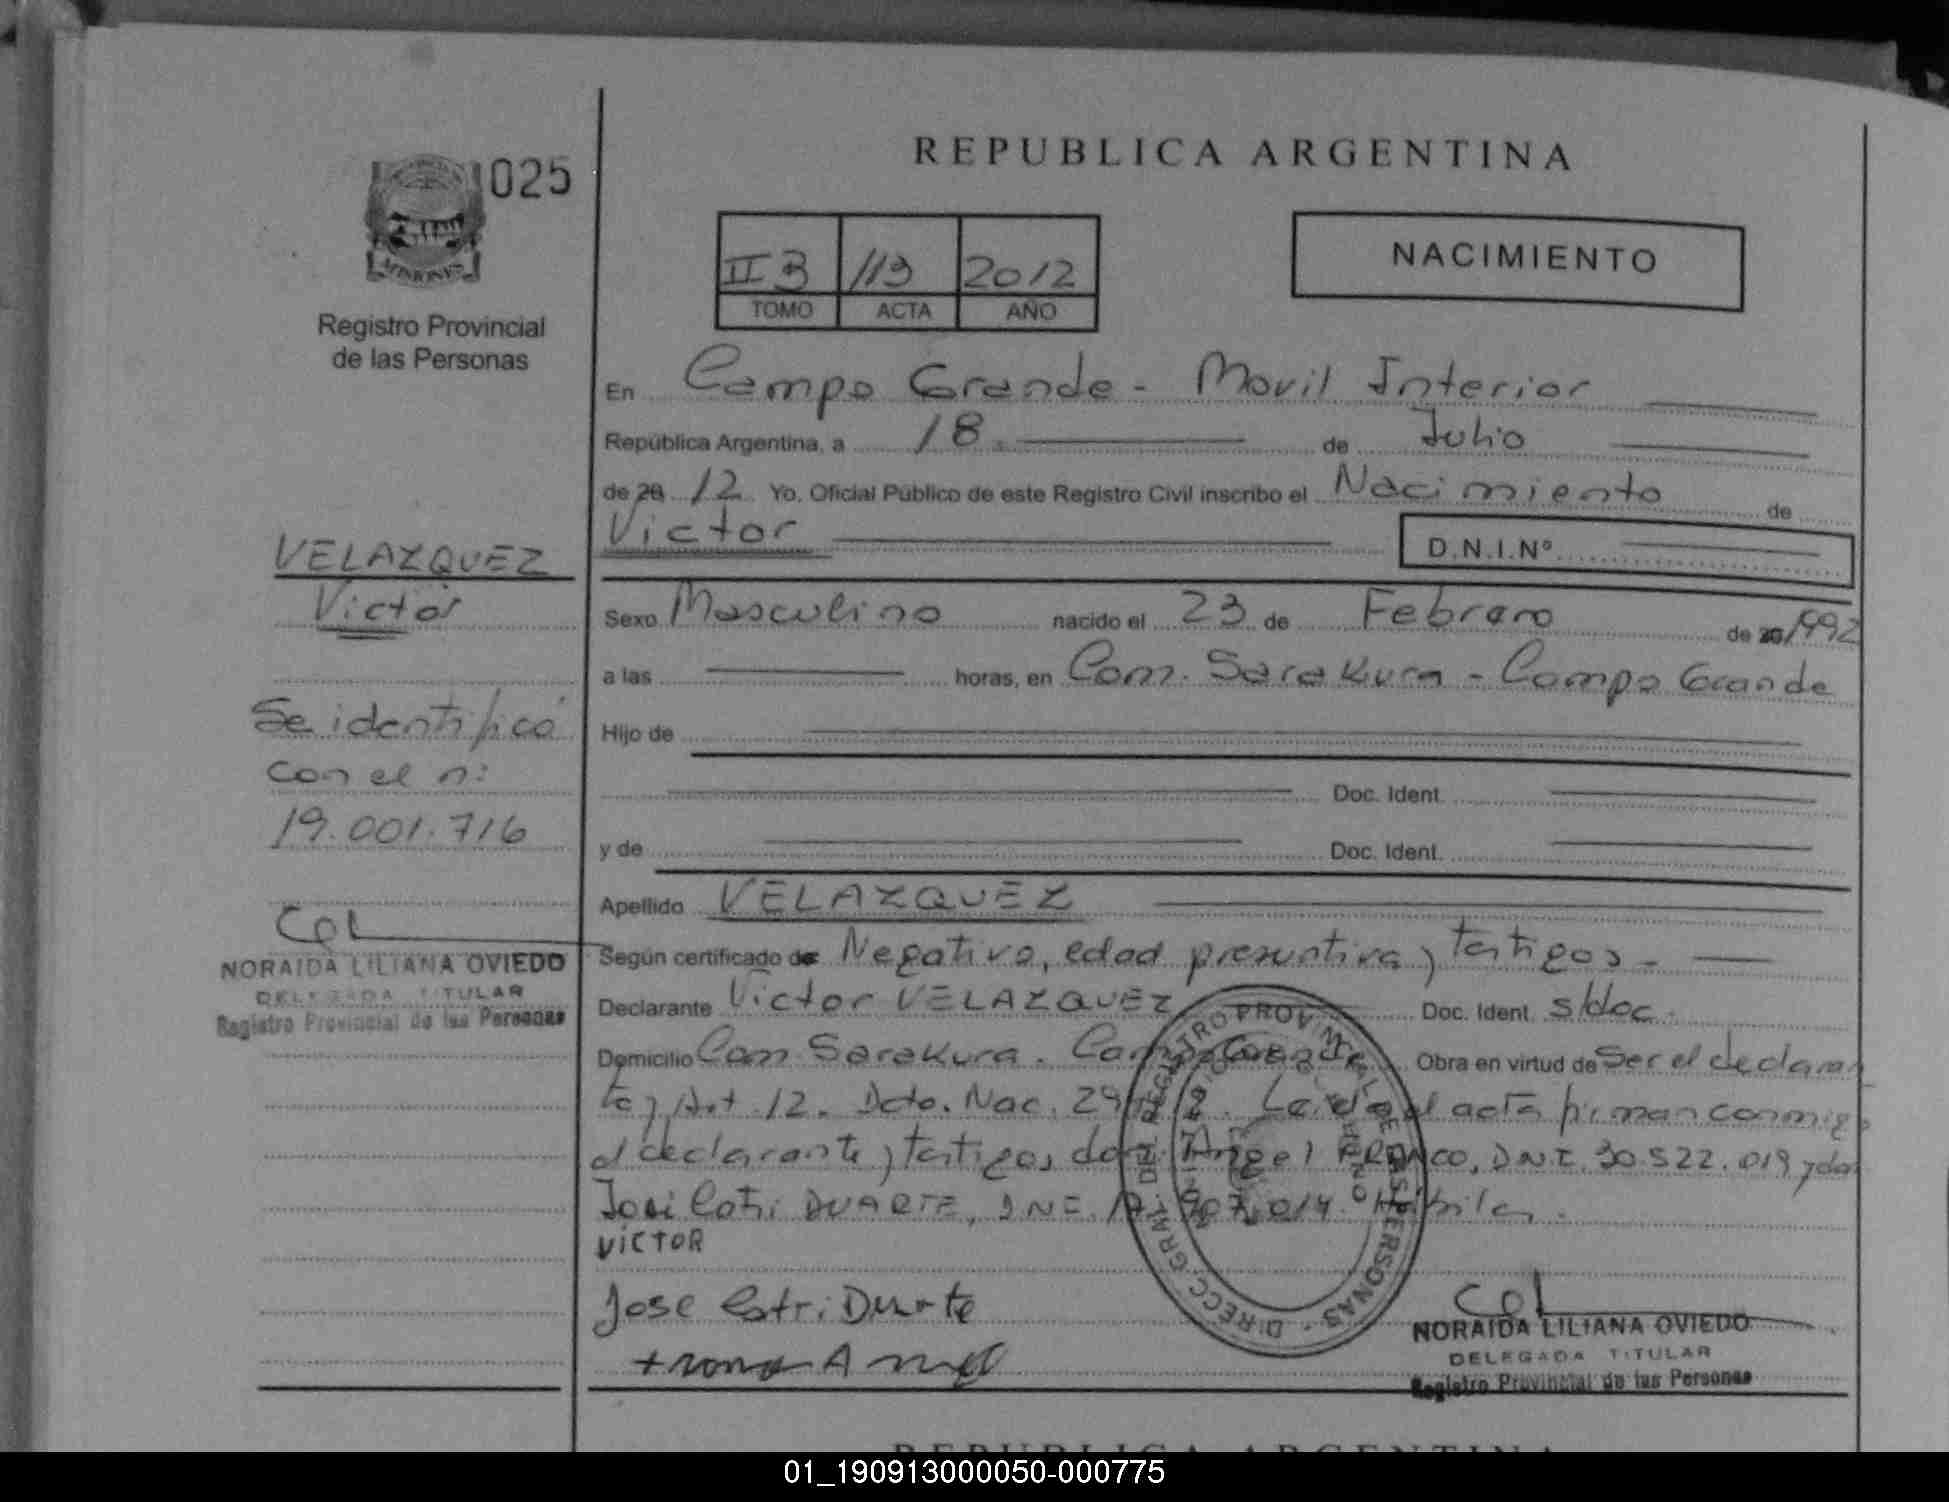 REPUBLICA ARGENTINA
025
MISIONES
Registro Provincial
de las Personas
II B 113 2012
TOMO ACTA AÑO
NACIMIENTO
En Campo Grande - Movil Interior
República Argentina, a 18 de Julio
de 20 12 Yo, Oficial Público de este Registro Civil inscribo el Nacimiento de
Victor
D.N.I.Nº
VELAZQUEZ
Victor
Se identificó
con el n:
19.001.716
NORAIDA LILIANA OVIEDO
DELEGADA TITULAR
Registro Provincial de las Personas
Sexo Masculino nacido el 23 de Febrero de 1992
a las horas, en Com. Sarakura - Campo Grande
Hijo de
Doc. Ident.
y de Doc. Ident.
Apellido VELAZQUEZ
Según certificado de Negativo, edad presuntiva y testigos.
Declarante Victor VELAZQUEZ Doc. Ident. s/doc.
Domicilio Com. Sarakura. Campo Grande Obra en virtud de Ser el declaran
te y Art. 12. Dcto. Nac. Leida el acta firman conmigo
el declarante y testigos don Angel FRANCO, DNI. 30.522.019 y don
José Catri DUARTE, DNI. Hábiles.
VICTOR
Jose Catri Duarte
NORAIDA LILIANA OVIEDO
DELEGADA TITULAR
Registro Provincial de las Personas
DIRECC. GRAL. DEL REGISTRO PROVINCIAL DE LAS PERSONAS
REPUBLICA ARGENTINA
01_190913000050-000775